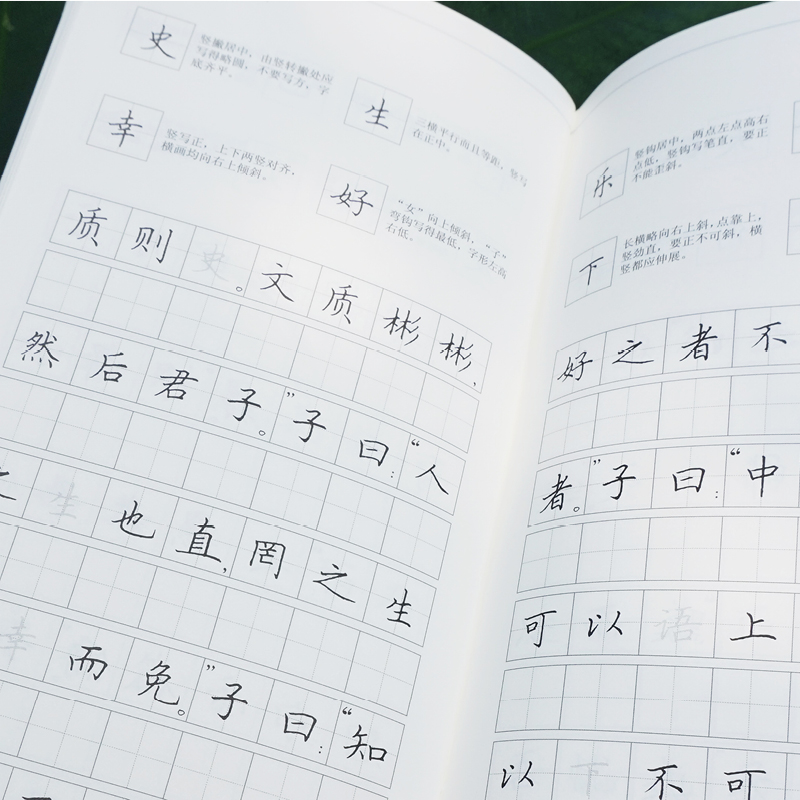 史
竖撇居中，由竖转撇处应
写得略圆，不要写方，字
底齐平。
生
三横平行而且等距，竖写
在正中。
幸
竖写正，上下两竖对齐，
横画均向右上倾斜。
好
“女”向上倾斜，“子”
弯钩写得最低，字形左高
右低。
质则史。文质彬彬，
然后君子。”子曰：“人
之生也直，罔之生
幸而免。”子曰：“知
乐
竖钩居中，两点左点高右
点低，竖钩写笔直，要正
不能歪斜。
下
长横略向右上斜，点靠上，
竖劲直，要正不可斜，横
竖都应伸展。
好之者不
者。”子曰：“中
可以语上
以下不可